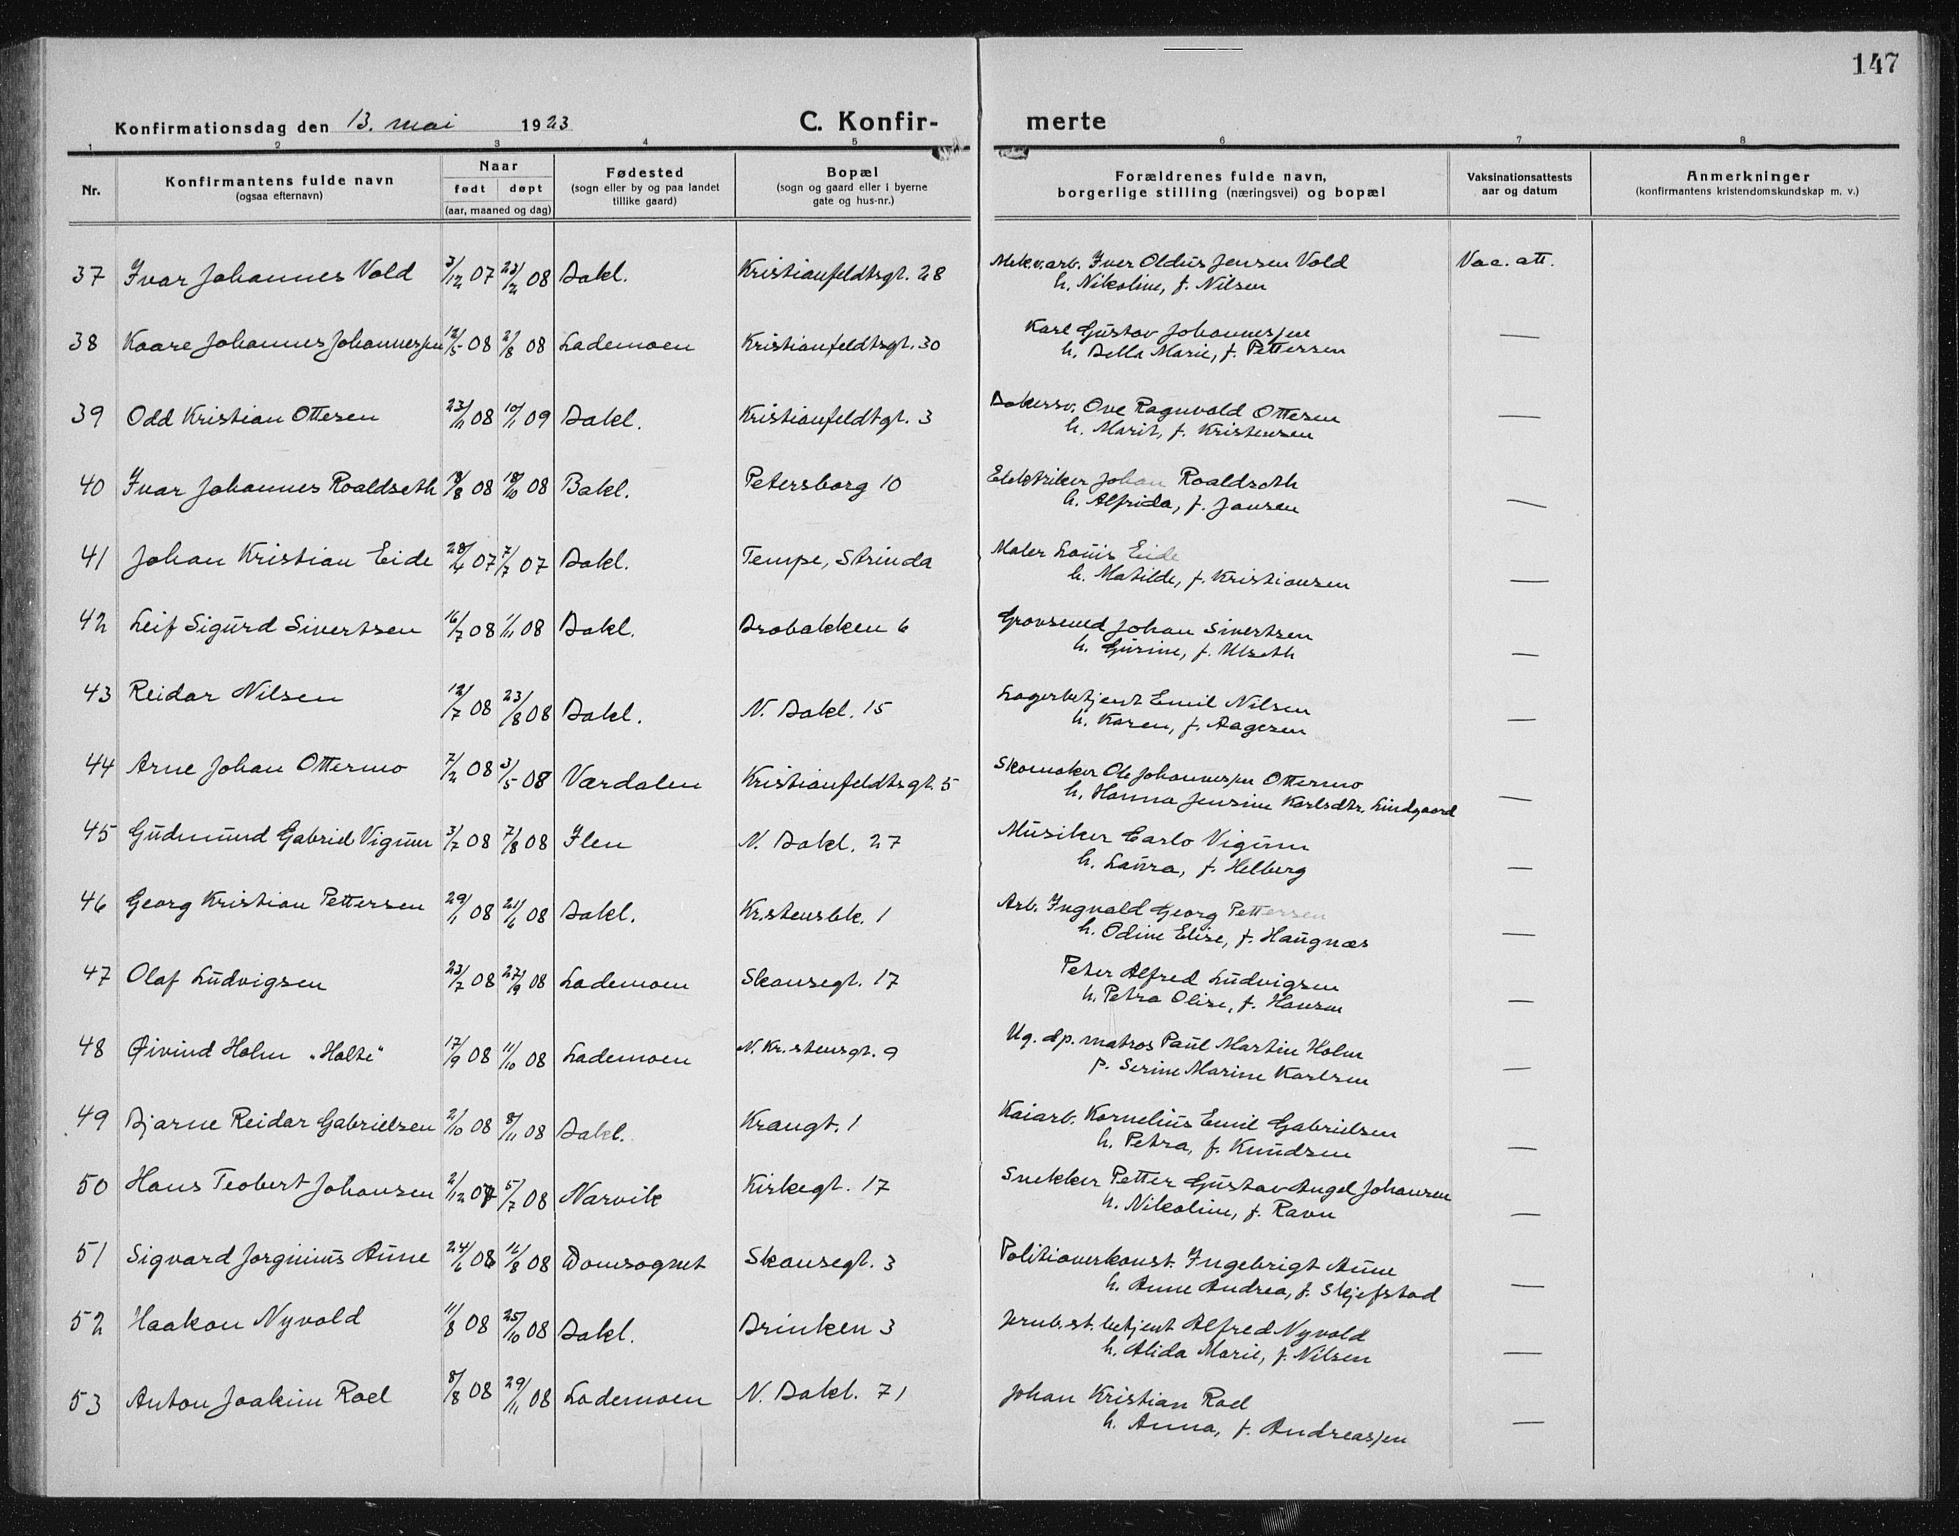 147
Konfirmationsdag den 13. mai 1923 C. Konfirmerte
1 2 3 4 5 6 7 8
Nr. Konfirmantens fulde navn (ogsaa efternavn) Naar født døpt (aar, maaned og dag) Fødested (sogn eller by og paa landet tillike gaard) Bopæl (sogn og gaard eller i byerne gate og hus-nr.) Forældrenes fulde navn, borgerlige stilling (næringsvei) og bopæl Vaksinationsattests aar og datum Anmerkninger (konfirmantens kristendomskundskap m. v.)
37 Ivar Johannes Vold 3/12 07 23/2 08 Bakl. Kristianfeldtsgt. 28 Mek.arb. Iver Oldus Jensen Vold Vac. att.
h. Nikoline, f. Nilsen
38 Kaare Johannes Johannessen 12/5 08 2/8 08 Lademoen Kristianfeldtsgt. 30 Karl Gustav Johannessen —
h. Della Marie, f. Pettersen
39 Odd Kristian Ottesen 23/11 08 10/1 09 Bakl. Kristianfeldtgt. 3 Bakersv. Ove Ragnvald Ottesen —
h. Marit, f. Kristensen
40 Ivar Johannes Roaldseth 18/8 08 18/10 08 Bakl. Petersborg 10 Elektriker Johan Roaldseth —
h. Alfrida, f. Jansen
41 Johan Kristian Eide 07 7/7 07 Bakl. Tempe, Strinda Maler Louis Eide —
h. Matilde, f. Kristiansen
42 Leif Sigurd Sivertsen 16/7 08 1/11 08 Bakl. Brobakken 6 Grovsmed Johan Sivertsen —
h. Gurine, f. Ulseth
43 Reidar Nilsen 12/7 08 23/8 08 Bakl. N. Bakl. 15 Lagerbetjent Emil Nilsen —
h. Karen, f. Aagesen
44 Arne Johan Ottermo 7/2 08 3/5 08 Værdalen Kristianfeldtsgt. 5 Skomaker Ole Johannessen Ottermo —
h. Hanna Jensine Karlsdtr. Lindgaard
45 Gudmund Gabriel Vigum 3/7 08 7/8 08 Ilen N. Bakl. 27 Musiker Carlo Vigum —
h. Laura, f. Helberg
46 Georg Kristian Pettersen 29/1 08 21/6 08 Bakl. Kr.stensbk. 1 Arb. Ingvald Georg Pettersen —
h. Odine Elise, f. Haugnæs
47 Olaf Ludvigsen 23/7 08 27/9 08 Lademoen Skansegt. 17 Peter Alfred Ludvigsen —
h. Petra Olise, f. Hansen
48 Øivind Holm "Holte" 17/9 08 11/10 08 Lademoen N. Kr.stensgt. 9 Ug. dp. matros Paul Martin Holm —
p. Serine Marine Karlsen
49 Bjarne Reidar Gabrielsen 2/10 08 8/11 08 Bakl. Krangt. 1 Kaiarb. Kornelius Emil Gabrielsen —
h. Petra, f. Knudsen
50 Hans Teobert Johansen 2/12 07 5/7 08 Narvik Kirkegt. 17 Snekker Petter Gustav Angel Johansen —
h. Nikoline, f. Ravn
51 Sigvard Jorginius Aune 24/6 08 16/8 08 Domsognet Skansegt. 3 Politioverkonst. Ingebrigt Aune —
h. Anne Andrea, f. Skjefstad
52 Haakon Nyvold 11/8 08 25/10 08 Bakl. Brinken 3 Jernb.st. betjent Alfred Nyvold —
h. Alida Marie, f. Nilsen
53 Anton Joakim Roel 8/8 08 29/11 08 Lademoen N. Bakl. 71 Johan Kristian Roel —
h. Anna, f. Andreassen